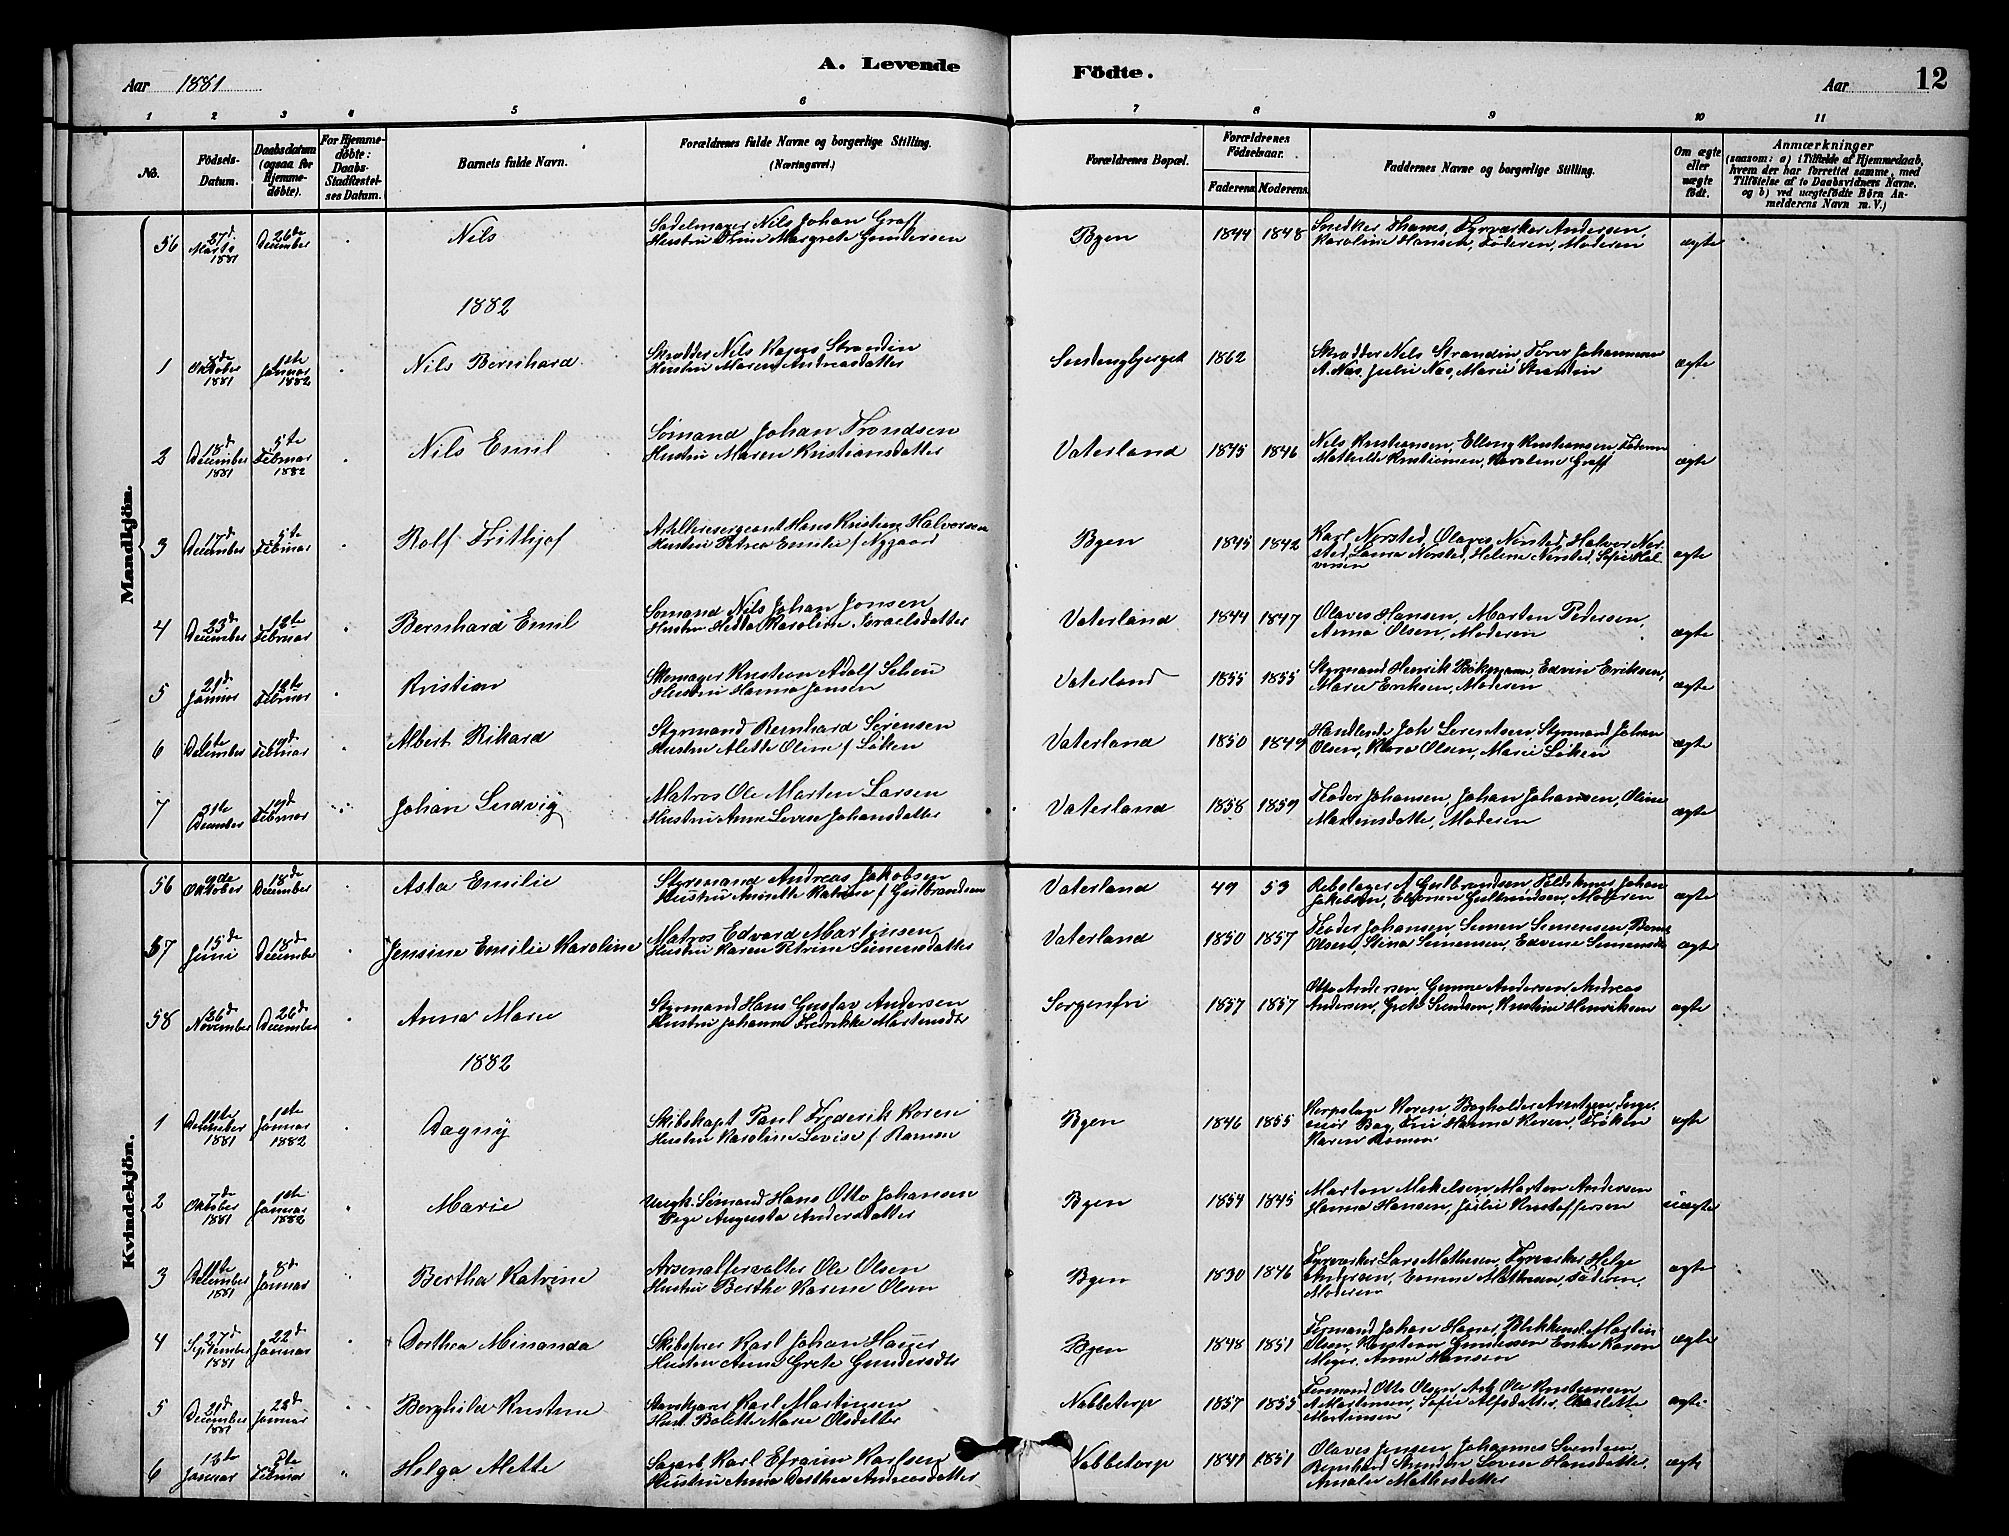 A. Levende Födte.
Aar 1881
Aar 12
1 2 3 4 5 6 7 8 9 10 11
No.
Födsels-Datum.
Daabsdatum (ogsaa for Hjemmedøbte).
For Hjemmedøbte: Daabs-Stadfæstelses Datum.
Barnets fulde Navn.
Forældrenes fulde Navne og borgerlige Stilling. (Næringsvei.)
Forældrenes Bopæl.
Forældrenes Födselsaar.
Faderens. Moderens.
Faddernes Navne og borgerlige Stilling.
Om ægte eller uægte födt.
Anmærkninger
(saasom: a) i Tilfælde af Hjemmedaab,
hvem der har forrettet samme, med
Tilföielse af to Daabsvidners Navne,
og b) ved uægtefödte Börn An-
melderens Navn m. V.)
Mandkjön.
56 27d Marts 1881 26de December Nils
Sadelmager Nils Johan Graff
Hustru Oline Margrete Gundersen
Byen 1844 1848
Snedker Thams, Fyrværker Andersen,
Karoline Hansen, Faderen, Moderen
ægte
1882
1 8de Oktober 1881 1ste Januar 1882 Nils Bernhard
Skrædder Nils Strandin
Hustru Maren Andreasdatter
1862
Skrædder Nils Strandin, Johannesen
A. Næs, Julie Næs, Marie Strandin
ægte
2 18d December 1881 5te Februar 1882 Nils Emil
Sømand Johan Trondsen
Hustru Maren Kristiansdatter
Vaterland 1845 1846
Nils Kristiansen, Elling Kristiansen, Faderen
Mathilde Kristiansen, Karoline Graff
ægte
3 17d December 5te Februar Rolf Frithjof
Artillerisergeant Hans Kristian Halvorsen
Hustru Petrea Emilie f Nygaard
Byen 1845 1842
Karl Norsted, Olaves Norsted, Halvor Nor-
sted, Laura Norsted, Helene Norsted, Sofie Hal-
vorsen
ægte
4 23d December 12te Februar Bernhard Emil
Sømand Nils Johan Jonsen
Hustru Hedda Karoline Israelsdatter
Vaterland 1844 1847
Olaves Hansen, Marten Pedersen,
Anna Olsen, Moderen
ægte
5 21d Januar 12te Februar Kristian
Skomager Kristian Adolf
Hustru Hanna Jansen
Vaterland 1855 1855
Styrmand Henrik Bökmann, Edvin Eriksen,
Marie Eriksen, Moderen
ægte
6 6te December 19d Februar Albert Rikard
Styrmand Bernhard Sørensen
Hustru Alette Oline f Løken
Vaterland 1850 1849
Handlende Joh Sørentsen, Styrmand Johan
Olsen, Klara Olsen, Marie Løken
ægte
7 31te December 19d Februar Johan Ludvig
Matros Ole Marten Larsen
Hustru Anne Lovise Johansdatter
Vaterland 1858 1859
Theodor Johansen, Johan Johansen, Oline
Martinsdatter, Moderen
ægte
Kvindekjön.
56 9de Oktober 18de December Asta Emilie
Styrmand Andreas Jakobsen
Hustru Annette Katrine f Gulbrandsen
Vaterland 49 53
Rebslager A Gulbrandsen, Johan
Jakobsen, Gulbrandsen, Moderen
ægte
57 15de Juni 18de December Jensine Emilie Karoline
Matros Edvard Martinsen
Hustru Karen Petrine Simensdatter
Vaterland 1850 1857
Theodor Johansen, Simen Simensen,
Olsen, Stina Simensen, Edvine Simensdt
ægte
58 26d November 26de December Anna Marie
Styrmand Hans Gustav Andersen
Hustru Johanne Fredrikke Martensdt
Sorgenfri 1857 1857
Otto Andersen, Gunne Andersen, Andreas
Andersen, Grete Svendsen, Kristine Henriksen
ægte
1882
1 11te December 1881 1ste Januar 1882 Dagny
Skibskapt Paul Frederik Koren
Hustru Karoline Lovise f Ramm
Byen 1846 1855
Korpslæge Koren, Bogholder Arntzen,
Fru Hanna Koren, Frøken
Karen
ægte
2 7de Oktober 1881 1ste Januar 1882 Marie
Ungk. Sømand Hans Otto Johansen
Pige Augusta Andersdatter
Byen 1854 1845
Marton Mikelsen, Marton Andersen
Hanna Hansen, Julie Kristoffersen
uægte
3 11te December 1881 8d Januar Bertha Katrine
Arsenalforvalter Ole Olsen
Hustru Berthe Karene Olsen
Byen 1830 1846
Fyrværker Lars Mathesen, Fyrværker Helge
Andersen, Emma Mathesen, Faderen,
Moderen
ægte
4 27d September 1881 22d Januar Dorthea Minanda
Skibsfører Karl Johan
Hustru Anne Grete Gundersdt
Byen 1848 1851
Johan Martin
Olsen, Kristian Gundersen Karen
Meyer, Anne Hansen
ægte
5 21d December 1881 22d Januar Borghild Kristine
Karl Martinsen
Hust Bolette Marie Olsdatter
Nabbetorp 1857 1855
Formand Otto Olsen, Arb Ole Kristiansen
A Martinsen, Sofie Alfsdatter, Charlotte
Martinsen
ægte
6 13te Januar 5te Februar Helga Alette
Sagarb Karl Efraim Karlsen
Hustru Anna Dorthea Andreasdatter
Nabbetorp 1841 1851
Olaves Jensen, Johannes Svendsen,
Bernhard Lovise Hansdatter,
Amalie Mathisdatter
ægte